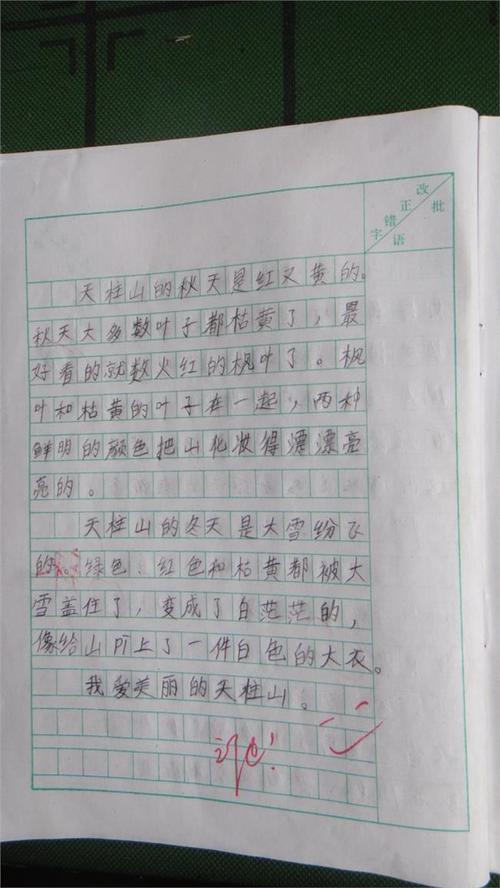 改 批
正
错
字 语
天柱山的秋天是红又黄的。
秋天大多数叶子都枯黄了，最
好看的就数火红的枫叶了。枫
叶和枯黄的叶子在一起，两种
鲜明的颜色把山化妆得漂漂亮
亮的。
天柱山的冬天是大雪纷飞
的。绿色 红色和枯黄都被大
雪盖住了，变成了白茫茫的，
像给山PI上了一件白色的大衣。
我爱美丽的天柱山。